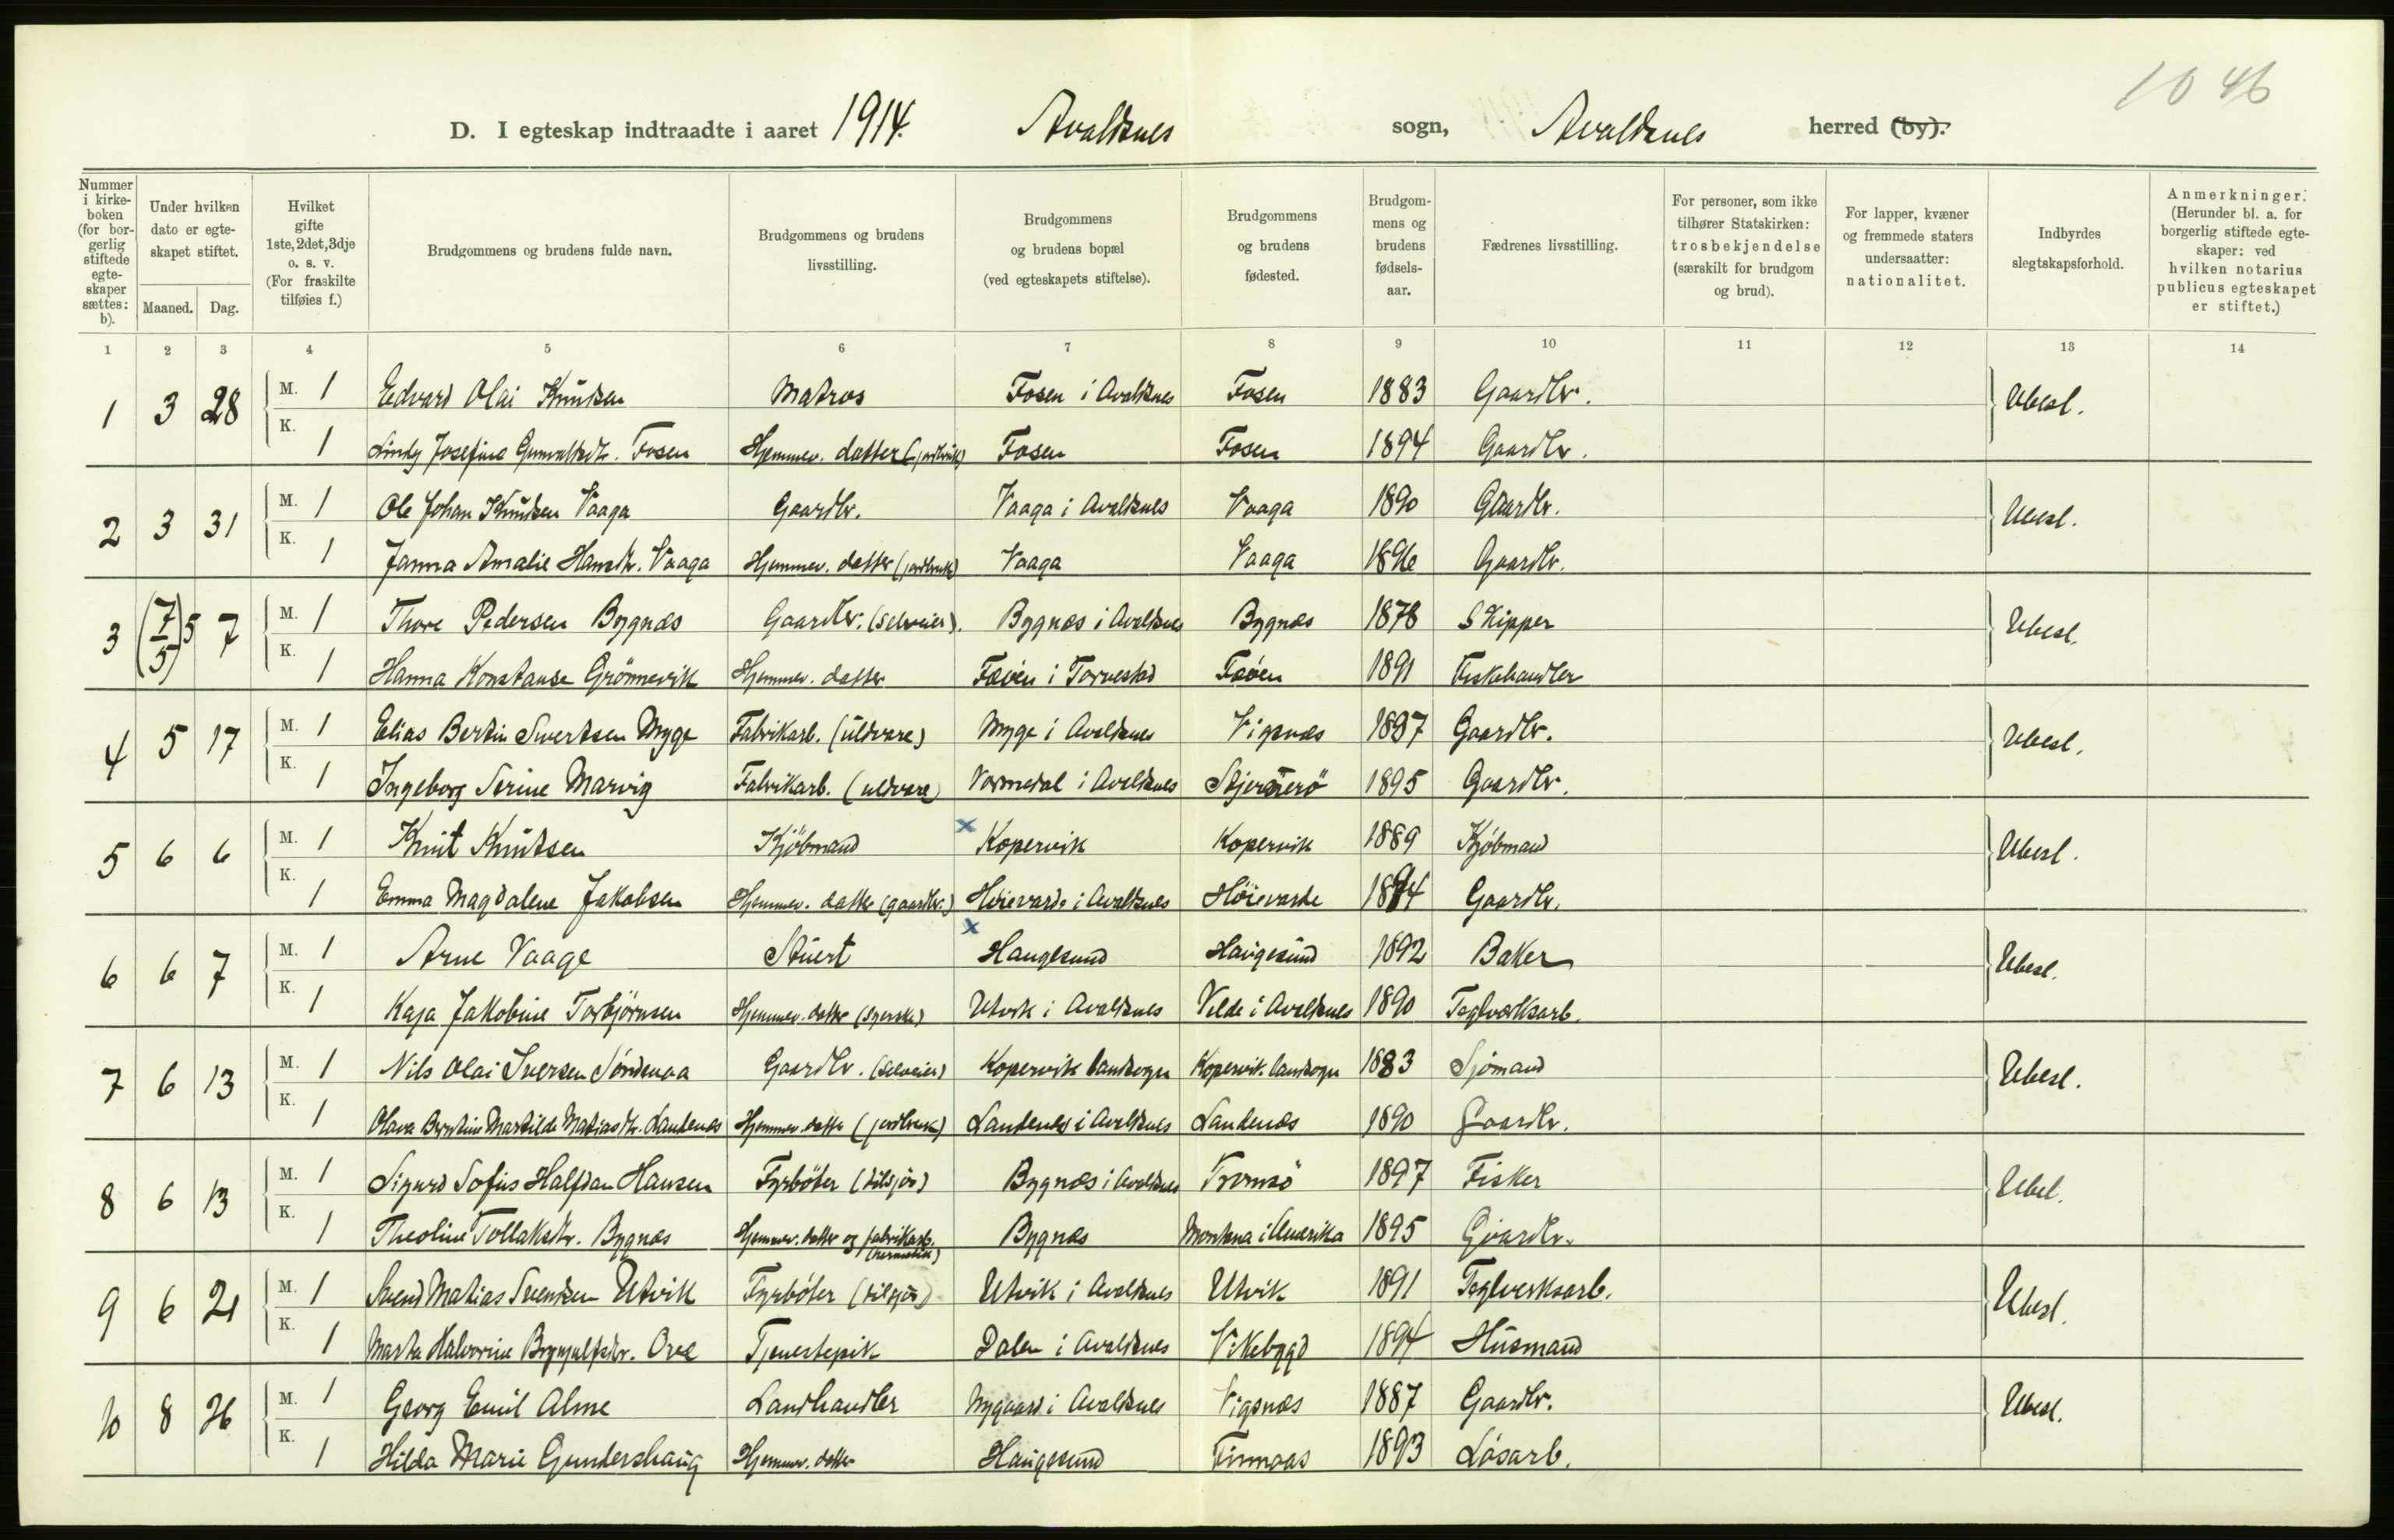 10 46
D. I egteskap indtraadte i aaret 1914. Avaldsnes sogn, Avaldsnes herred (by).
Nummer i kirkeboken (for borgerlig stiftede egteskaper sættes: b).
Under hvilken dato er egteskapet stiftet.
Maaned. Dag.
Hvilket gifte 1ste, 2det, 3dje o. s. v. (For fraskilte tilføies f.)
Brudgommens og brudens fulde navn.
Brudgommens og brudens livsstilling.
Brudgommens og brudens bopæl (ved egteskapets stiftelse).
Brudgommens og brudens fødested.
Brudgommens og brudens fødselsaar.
Fædrenes livsstilling.
For personer, som ikke tilhører Statskirken: trosbekjendelse (særskilt for brudgom og brud).
For lapper, kvæner og fremmede staters undersaatter: nationalitet.
Indbyrdes slegtskapsforhold.
Anmerkninger. (Herunder bl. a. for borgerlig stiftede egteskaper: ved hvilken notarius publicus egteskapet er stiftet.)
1 2 3 4 5 6 7 8 9 10 11 12 13 14
1 3 28 M. 1 Edvard Olai Knudsen Matros Fosen i Avaldsnes Fosen 1883 Gaardbr. Ubesl.
K. 1 Josefine Fosen Hjemmev. datter (jordbruk) Fosen Fosen 1894 Gaardbr.
2 3 31 M. 1 Ole Johan Knudsen Vaaga Gaardbr. Vaaga i Avaldsnes Vaaga 1890 Gaardbr. Ubesl.
K. 1 Janna Amalie Hansdtr. Vaaga Hjemmev. datter (jordbruk) Vaaga Vaaga 1896 Gaardbr.
3 (7/5) 5 7 M. 1 Thore Pedersen Bygnæs Gaardbr. (selveier). Bygnæs i Avaldsnes Bygnæs 1878 Skipper Ubesl.
K. 1 Hanna Konstanse Grönnevik Hjemmev. datter Fæöen i Torvestad Fæöen 1891 Fiskehandler
4 5 17 M. 1 Elias Bertin Sivertsen Myge Fabrikarb. (uldvare) Myge i Avaldsnes Vigsnæs 1897 Gaardbr. Ubesl.
K. 1 Ingeborg Serine Marvig Fabrikarb. (uldvare) Vormedal i Avaldsnes Stjernerö 1895 Gaardbr.
5 6 6 M. 1 Knut Knutsen Kjöbmand x Kopervik Kopervik 1889 Kjöbmand Ubesl.
K. 1 Emma Magdalene Jakobsen Hjemmev. datter (gaardbr.) Höievarde i Avaldsnes Höievarde 1894 Gaardbr.
6 6 7 M. 1 Arne Vaage Stuert x Haugesund Haugesund 1892 Baker Ubesl.
K. 1 Kaja Jakobine Torbjörnsen Hjemmev. datter (syerske) Utvik i Avaldsnes Velde i Avaldsnes 1890 Teglverksarb.
7 6 13 M. 1 Nils Olai Iversen Söndenaa Gaardbr. (selveier) Kopervik landsogn Kopervik landsogn 1883 Sjömand Ubesl.
K. 1 Olava Matiasdtr. Landenæs Hjemmev. datter (jordbruk) Landenæs i Avaldsnes Landenæs 1890 Gaardbr.
8 6 13 M. 1 Sigurd Sofus Halfdan Hansen Fyrböter (tilsjös) Bygnæs i Avaldsnes Tromsö 1897 Fisker Ubel.
K. 1 Theoline Tollaksdtr. Bygnæs Hjemmev. datter og fabrikarb. (hermetik) Bygnæs Montana i Amerika 1895 Gaardbr.
9 6 21 M. 1 Svend Matias Svendsen Utvik Fyrböter (tilsjös) Utvik i Avaldsnes Utvik 1891 Teglverksarb. Ubesl.
K. 1 Marta Halvorine Brynjulfsdtr. Tjenestepik Dalen i Avaldsnes Vikebygd 1894 Husmand
10 8 26 M. 1 Georg Emil Alme Landhandler Nygaard i Avaldsnes Vigsnæs 1887 Gaardbr. Ubesl.
K. 1 Hilda Marie Gundershaug Hjemmev. datter Haugesund Finnaas 1893 Lösarb.